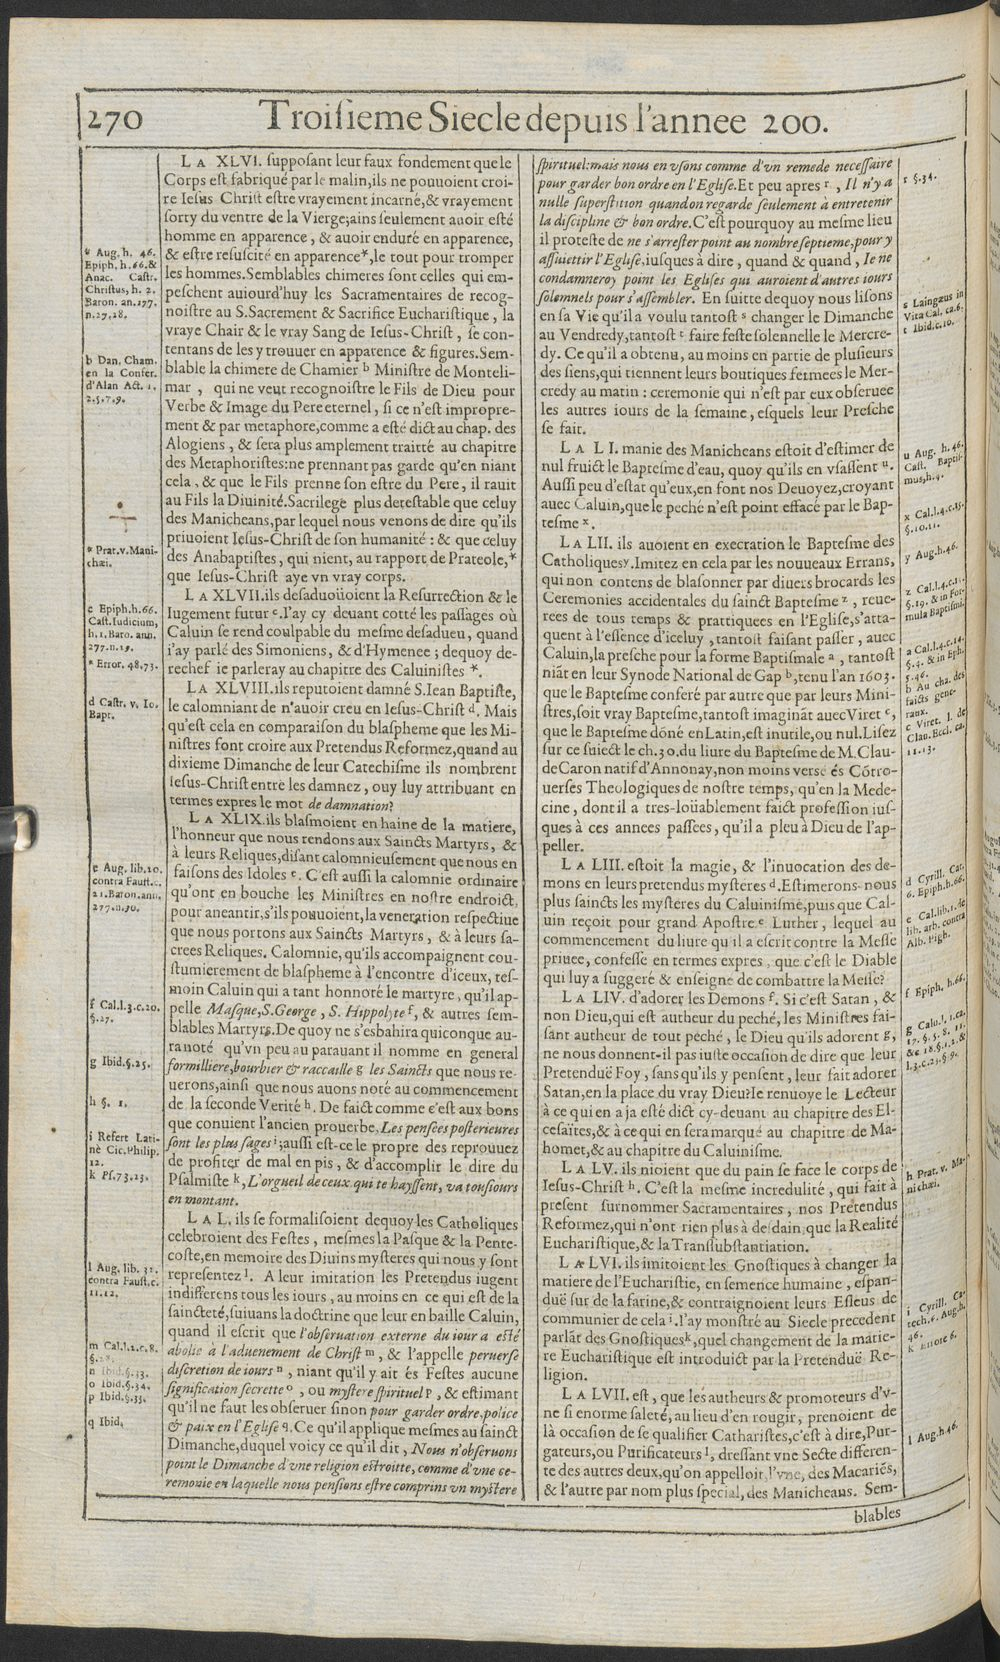 270 Troisieme Siecle depuis l'annee 200.
LA XLVI. supposant leur faux fondement que le
Corps est fabriqué par le malin, ils ne pouuoient croi-
re Iesus Christ estre vrayement incarné, & vrayement
sorty du ventre de la Vierge; ains seulement auoir esté
homme en apparence, & auoir enduré en apparence,
& estre resuscité en apparence*, le tout pour tromper
les hommes. Semblables chimeres sont celles qui em-
peschent auiourd'huy les Sacramentaires de recog-
noistre au S. Sacrement & Sacrifice Eucharistique, la
vraye Chair & le vray Sang de Iesus-Christ, se con-
tentans de les y trouuer en apparence & figures. Sem-
blable la chimere de Chamier b Ministre de Monteli-
mar, qui ne veut recognoistre le Fils de Dieu pour
Verbe & Image du Pere eternel, si ce n'est impropre-
ment & par metaphore, comme a esté dict au chap. des
Alogiens, & sera plus amplement traitté au chapitre
des Metaphoristes: ne prennant pas garde qu'en niant
cela, & que le Fils prenne son estre du Pere, il rauit
au Fils la Diuinité. Sacrilege plus detestable que celuy
des Manicheans, par lequel nous venons de dire qu'ils
priuoient Iesus-Christ de son humanité: & que celuy
des Anabaptistes, qui nient, au rapport de Prateole, *
que Iesus-Christ aye vn vray corps.
LA XLVII. ils desaduoüoient la Resurrection & le
Iugement futur c. I'ay cy deuant cotté les passages où
Caluin se rend coulpable du mesme desadueu, quand
i'ay parlé des Simoniens, & d'Hymenee; dequoy de-
rechef ie parleray au chapitre des Caluinistes *.
LA XLVIII. ils reputoient damné S. Iean Baptiste,
le calomniant de n'auoir creu en Iesus-Christ d. Mais
qu'est cela en comparaison du blaspheme que les Mi-
nistres font croire aux Pretendus Reformez, quand au
dixieme Dimanche de leur Catechisme ils nombrent
Iesus-Christ entre les damnez, ouy luy attribuant en
termes expres le mot de damnation?
LA XLIX. ils blasmoient en haine de la matiere,
l'honneur que nous rendons aux Saincts Martyrs, &
à leurs Reliques, disant calomnieusement que nous en
faisons des Idoles e. C'est aussi la calomnie ordinaire
qu'ont en bouche les Ministres en nostre endroict,
pour aneantir, s'ils pouuoient, la veneration respectiue
que nous portons aux Saincts Martyrs, & à leurs sa-
crees Reliques. Calomnie, qu'ils accompaignent cou-
stumierement de blaspheme à l'encontre d'iceux, tes-
moin Caluin qui a tant honnoré le martyre, qu'il ap-
pelle Masque, S. George, S. Hippolyte f, & autres sem-
blables Martyrs. De quoy ne s'esbahira quiconque au-
ra noté qu'vn peu au parauant il nomme en general
formilliere, bourbier & raccaille g les Saincts que nous re-
uerons, ainsi que nous auons noté au commencement
de la seconde Verité h. De faict comme c'est aux bons
que conuient l'ancien prouerbe, Les pensées posterieures
sont les plus sages i; aussi est-ce le propre des reprouuez
de profiter de mal en pis, & d'accomplir le dire du
Psalmiste k, L'orgueil de ceux qui te hayssent, va tousiours
en montant.
LA L. ils se formalisoient dequoy les Catholiques
celebroient des Festes, mesmes la Pasque & la Pente-
coste, en memoire des Diuins mysteres qui nous y sont
representez l. A leur imitation les Pretendus iugent
indifferens tous les iours, au moins en ce qui est de la
saincteté, suiuans la doctrine que leur en baille Caluin,
quand il escrit que l'obseruation externe du iour a esté
abolie à l'aduenement de Christ m, & l'appelle peruerse
discretion de iours n, niant qu'il y ait és Festes aucune
signification secrette o, ou mystere spirituel p, & estimant
qu'il ne faut les obseruer sinon pour garder ordre, police
& paix en l'Eglise q. Ce qu'il applique mesmes au sainct
Dimanche, duquel voicy ce qu'il dit, Nous n'obseruons
point le Dimanche d'vne religion estroitte, comme d'vne ce-
remonie en laquelle nous pensions estre comprins vn mystere
* Aug. h. 46.
Epiph. h. 66. &
Anac. Castr.
Christus, h. 2.
Baron. an. 277.
n. 27, 28.
b Dan. Cham.
en la Confer.
d'Alan Act. 1.
2. 5. 7. 9.
* Prat. v. Mani-
chæi.
c Epiph. h. 66.
Cast. Iudicium,
h. 1. Baro. ann.
277. n. 19.
* Error. 48, 73.
d Castr. v. Io.
Bapt.
e Aug. lib. 20.
contra Faust. c.
21. Baron. ann.
277. n. 30.
f Cal. l. 3. c. 20.
§. 27.
g Ibid. §. 25.
h §. 1.
i Refert Lati-
nè Cic. Philip.
12.
k Ps. 73. 23.
l Aug. lib. 32.
contra Faust. c.
11. 12.
m Cal. l. 2. c. 8.
§. 28.
n Ibid. §. 33.
o Ibid. §. 34.
p Ibid. §. 33.
q Ibid.
spirituel: mais nous en vsons comme d'vn remede necessaire
pour garder bon ordre en l'Eglise. Et peu apres r, Il n'y a
nulle superstition quand on regarde seulement à entretenir
la discipline & bon ordre. C'est pourquoy au mesme lieu
il proteste de ne s'arrester point au nombre septieme, pour y
assuiettir l'Eglise, iusques à dire, quand & quand, Ie ne
condamneroy point les Eglises qui auroient d'autres iours
solemnels pour s'assembler. En suitte dequoy nous lisons
en sa Vie qu'il a voulu tantost s changer le Dimanche
au Vendredy, tantost t faire feste solennelle le Mercre-
dy. Ce qu'il a obtenu, au moins en partie de plusieurs
des siens, qui tiennent leurs boutiques fermees le Mer-
credy au matin: ceremonie qui n'est par eux obseruee
les autres iours de la semaine, esquels leur Presche
se fait.
LA LI. manie des Manicheans estoit d'estimer de
nul fruict le Baptesme d'eau, quoy qu'ils en vsassent u.
Aussi peu d'estat qu'eux, en font nos Deuoyez, croyant
auec Caluin, que le peché n'est point effacé par le Bap-
tesme x.
LA LII. ils auoient en execration le Baptesme des
Catholiques y. Imitez en cela par les nouueaux Errans,
qui non contens de blasonner par diuers brocards les
Ceremonies accidentales du sainct Baptesme z, reue-
rees de tous temps & prattiquees en l'Eglise, s'atta-
quent à l'essence d'iceluy, tantost faisant passer, auec
Caluin, la presche pour la forme Baptismale a, tantost
niāt en leur Synode National de Gap b, tenu l'an 1603.
que le Baptesme conferé par autre que par leurs Mini-
stres, soit vray Baptesme, tantost imagināt auec Viret c,
que le Baptesme dōné en Latin, est inutile, ou nul. Lisez
sur ce suiect le ch. 30. du liure du Baptesme de M. Clau-
de Caron natif d'Annonay, non moins versé és Cōtro-
uerses Theologiques de nostre temps, qu'en la Mede-
cine, dont il a tres-loüablement faict profession ius-
ques à ces annees passees, qu'il a pleu à Dieu de l'ap-
peller.
LA LIII. estoit la magie, & l'inuocation des de-
mons en leurs pretendus mysteres d. Estimerons-nous
plus saincts les mysteres du Caluinisme, puis que Cal-
uin reçoit pour grand Apostre e Luther, lequel au
commencement du liure qu'il a escrit contre la Messe
priuee, confesse en termes expres, que c'est le Diable
qui luy a suggeré & enseigné de combattre la Messe?
LA LIV. d'adorer les Demons f. Si c'est Satan, &
non Dieu, qui est autheur du peché, les Ministres fai-
sant autheur de tout peché, le Dieu qu'ils adorent g,
ne nous donnent-il pas iuste occasion de dire que leur
Pretenduë Foy, sans qu'ils y pensent, leur fait adorer
Satan, en la place du vray Dieu? Ie renuoye le Lecteur
à ce qui en a ja esté dict cy-deuant au chapitre des El-
cesaïtes, & à ce qui en sera marqué au chapitre de Ma-
homet, & au chapitre du Caluinisme.
LA LV. ils nioient que du pain se face le corps de
Iesus-Christ h. C'est la mesme incredulité, qui fait à
present surnommer Sacramentaires, nos Pretendus
Reformez, qui n'ont rien plus à desdain, que la Realité
Eucharistique, & la Transsubstantiation.
LA LVI. ils imitoient les Gnostiques à changer la
matiere de l'Eucharistie, en semence humaine, espan-
duë sur de la farine, & contraignoient leurs Esleus de
communier de cela i. I'ay monstré au Siecle precedent
parlāt des Gnostiques k, quel changement de la matie-
re Eucharistique est introduict par la Pretenduë Re-
ligion.
LA LVII. est, que les autheurs & promoteurs d'v-
ne si enorme saleté, au lieu d'en rougir, prenoient de
là occasion de se qualifier Catharistes, c'est à dire, Pur-
gateurs, ou Purificateurs l, dressant vne Secte differen-
te des autres deux, qu'on appelloit, l'vne, des Macariés,
& l'autre par nom plus special, des Manicheans. Sem-
blables
r §. 34.
s Laingæus in
Vita Cal. ca. 6.
t Ibid. c. 10.
u Aug. h. 46.
Cast. Baptis-
mus, h. 4.
x Cal. l. 4. c. 15.
§. 10. 11.
y Aug. h. 46.
z Cal. l. 4. c. 15.
§. 19. & in For-
mula Baptismi.
a Cal. l. 4. c. 14.
§. 4. & in Eph.
5. 46.
b Au cha. des
faicts gene-
raux.
c Viret. l. de
Clau. Eccl. ca.
11. 13.
d Cyrill. Cat.
6. Epiph. h. 66.
e Cal. lib. 1. de
lib. arb. contra
Alb. Pigh.
f Epiph. h. 66.
g Calu. l. 1. ca.
17. §. 5. 8. 11.
&c 18. §. 1. 2. &
l. 3. c. 23. §. 9.
h Prat. v. Ma-
nichæi.
i Cyrill. Ca-
tech. 6. Aug. h.
46.
k Errore 6.
l Aug. h. 46.